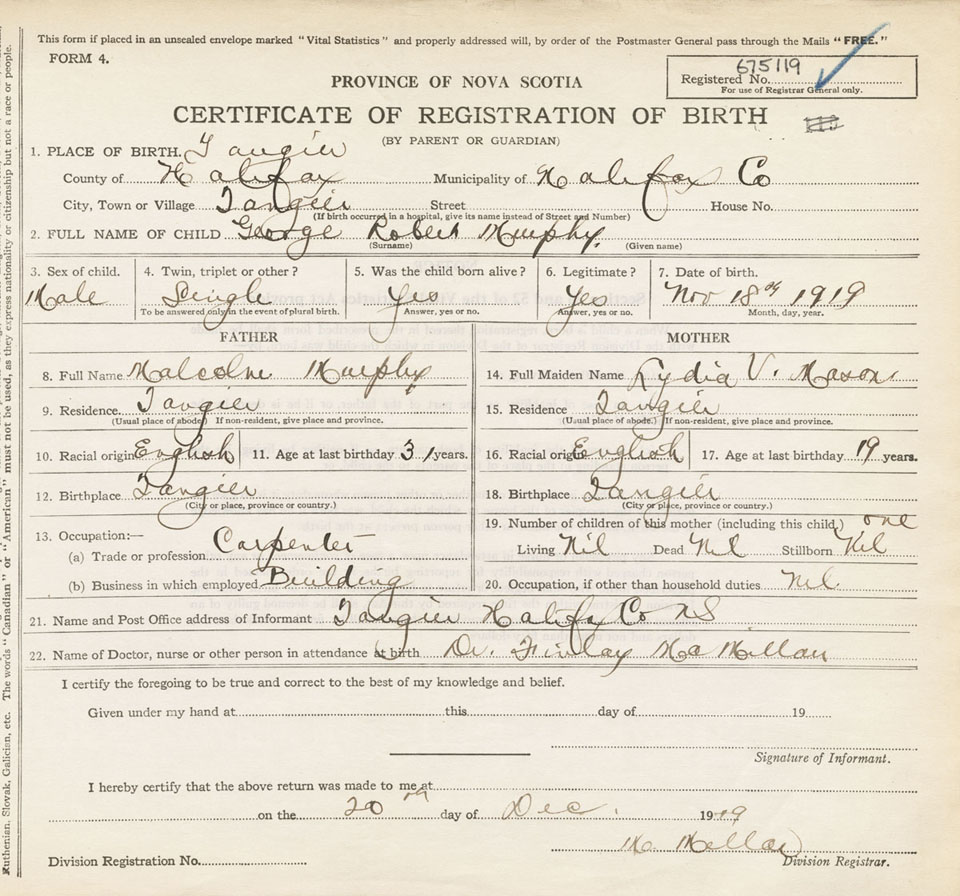 This form if placed in an unsealed envelope marked "Vital Statistics" and properly addressed will, by order of the Postmaster General pass through the Mails "FREE."
FORM 4.
PROVINCE OF NOVA SCOTIA
675119
Registered No.
For use of Registrar General only.
CERTIFICATE OF REGISTRATION OF BIRTH
(BY PARENT OR GUARDIAN)
1. PLACE OF BIRTH. Tangier
County of Halifax Municipality of Halifax Co
City, Town or Village Tangier Street House No.
(If birth occurred in a hospital, give its name instead of Street and Number)
2. FULL NAME OF CHILD George Robert Murphy.
(Surname) (Given name)
3. Sex of child. 4. Twin, triplet or other? 5. Was the child born alive? 6. Legitimate? 7. Date of birth.
Male Single Yes Yes Nov 18th 1919
To be answered only in the event of plural birth. Answer, yes or no. Answer, yes or no. Month, day, year.
FATHER MOTHER
8. Full Name Malcolm Murphy 14. Full Maiden Name Lydia V. Mason
9. Residence. Tangier 15. Residence Tangier
(Usual place of abode) If non-resident, give place and province. (Usual place of abode.) If non-resident, give place and province.
10. Racial origin English 11. Age at last birthday 31 years. 16. Racial origin English 17. Age at last birthday 19 years.
12. Birthplace Tangier 18. Birthplace Tangier
(City or place, province or country.) (City or place, province or country.)
13. Occupation:— 19. Number of children of this mother (including this child) one
(a) Trade or profession Carpenter Living Nil Dead Nil Stillborn Nil
(b) Business in which employed Building 20. Occupation, if other than household duties Nil
21. Name and Post Office address of Informant Tangier Halifax Co NS
22. Name of Doctor, nurse or other person in attendance at birth Dr. Finlay McMillan
I certify the foregoing to be true and correct to the best of my knowledge and belief.
Given under my hand at this day of 19
Signature of Informant.
I hereby certify that the above return was made to me at
on the 20th day of Dec. 1919
McMillan
Division Registration No. Division Registrar.
Ruthenian, Slovak, Galician, etc. The words "Canadian" or "American" must not be used, as they express nationality or citizenship but not a race or people.